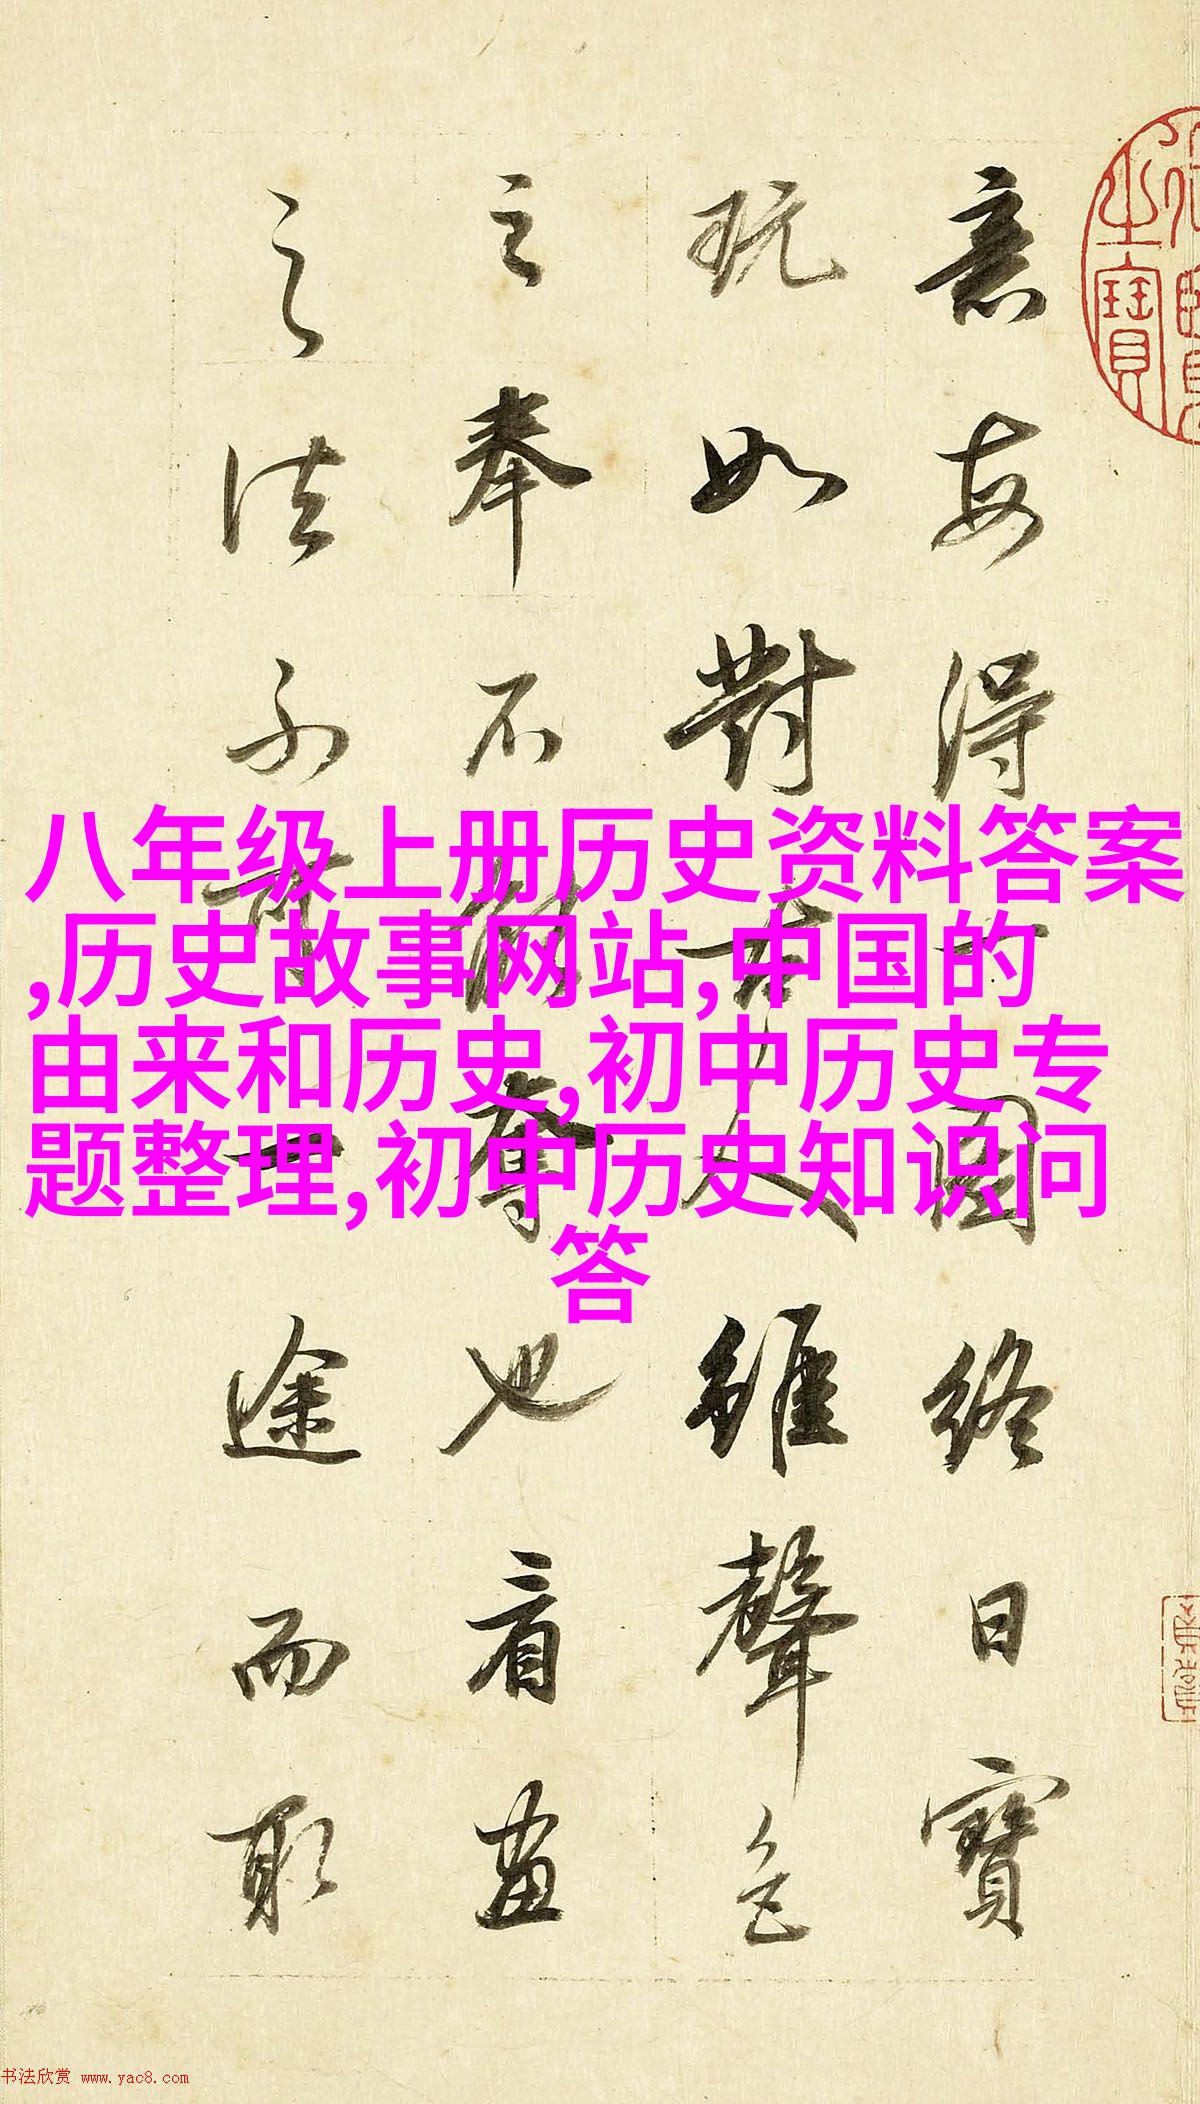 八年级上册历史资料答案
,历史故事网站,中国的
由来和历史,初中历史专
题整理,初中历史知识问
答
意每得一圖終日寶
玩如對古人雖聲色
之奉不能奪也看畫
之法不可一途而取
之寶
书法欣赏 www.yac8.com